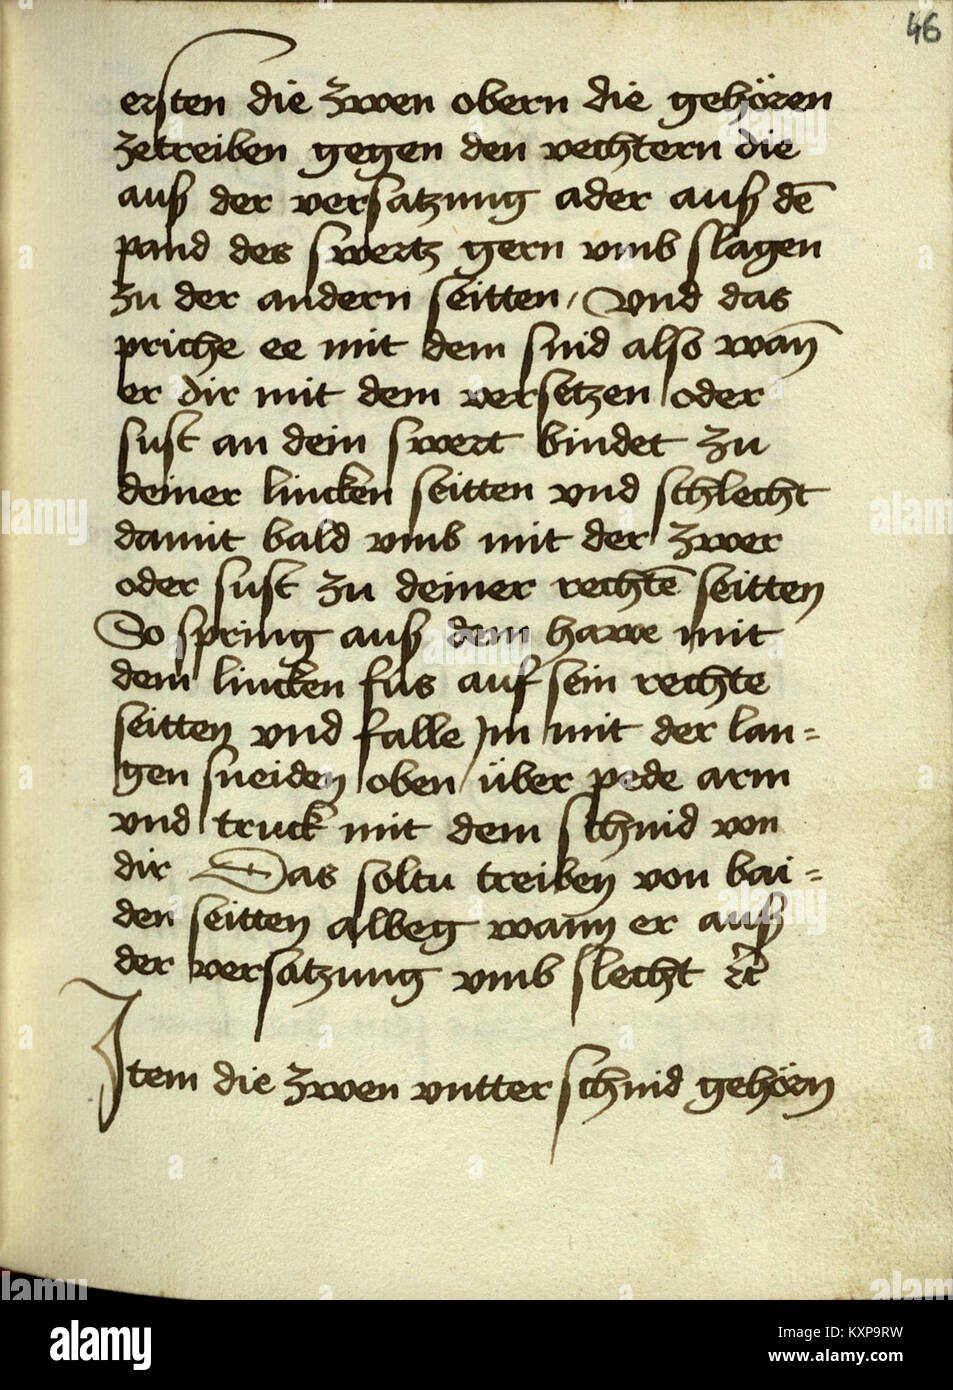 46
ersten die zwen obern die gehören
zetreiben gegen den vechtern die
auß der versatzung ader auß dē
pand des swertz gern vmb slagen
zu der andern seitten / Vnd das
priche ee mit dem snid also wan̄
er dir mit dem versetzen oder
sust an dein swert bindet zu
deiner lincken seitten vnd schlecht
damit bald vmb mit der zwer
oder sust zu deiner rechtē seitten
So spring auß dem hawe mit
dem lincken fus auf sein rechte
seitten vnd falle Jm mit der lan=
gen sneiden oben über pede arm
vnd truck mit dem schnid von
dir Das soltu treiben von bai=
den seitten alweg wann er auß
der versatzung vmb slecht ꝛc̄
Jtem die zwen vntter schnid gehörn
alamy
Image ID: KXP9RW
www.alamy.com